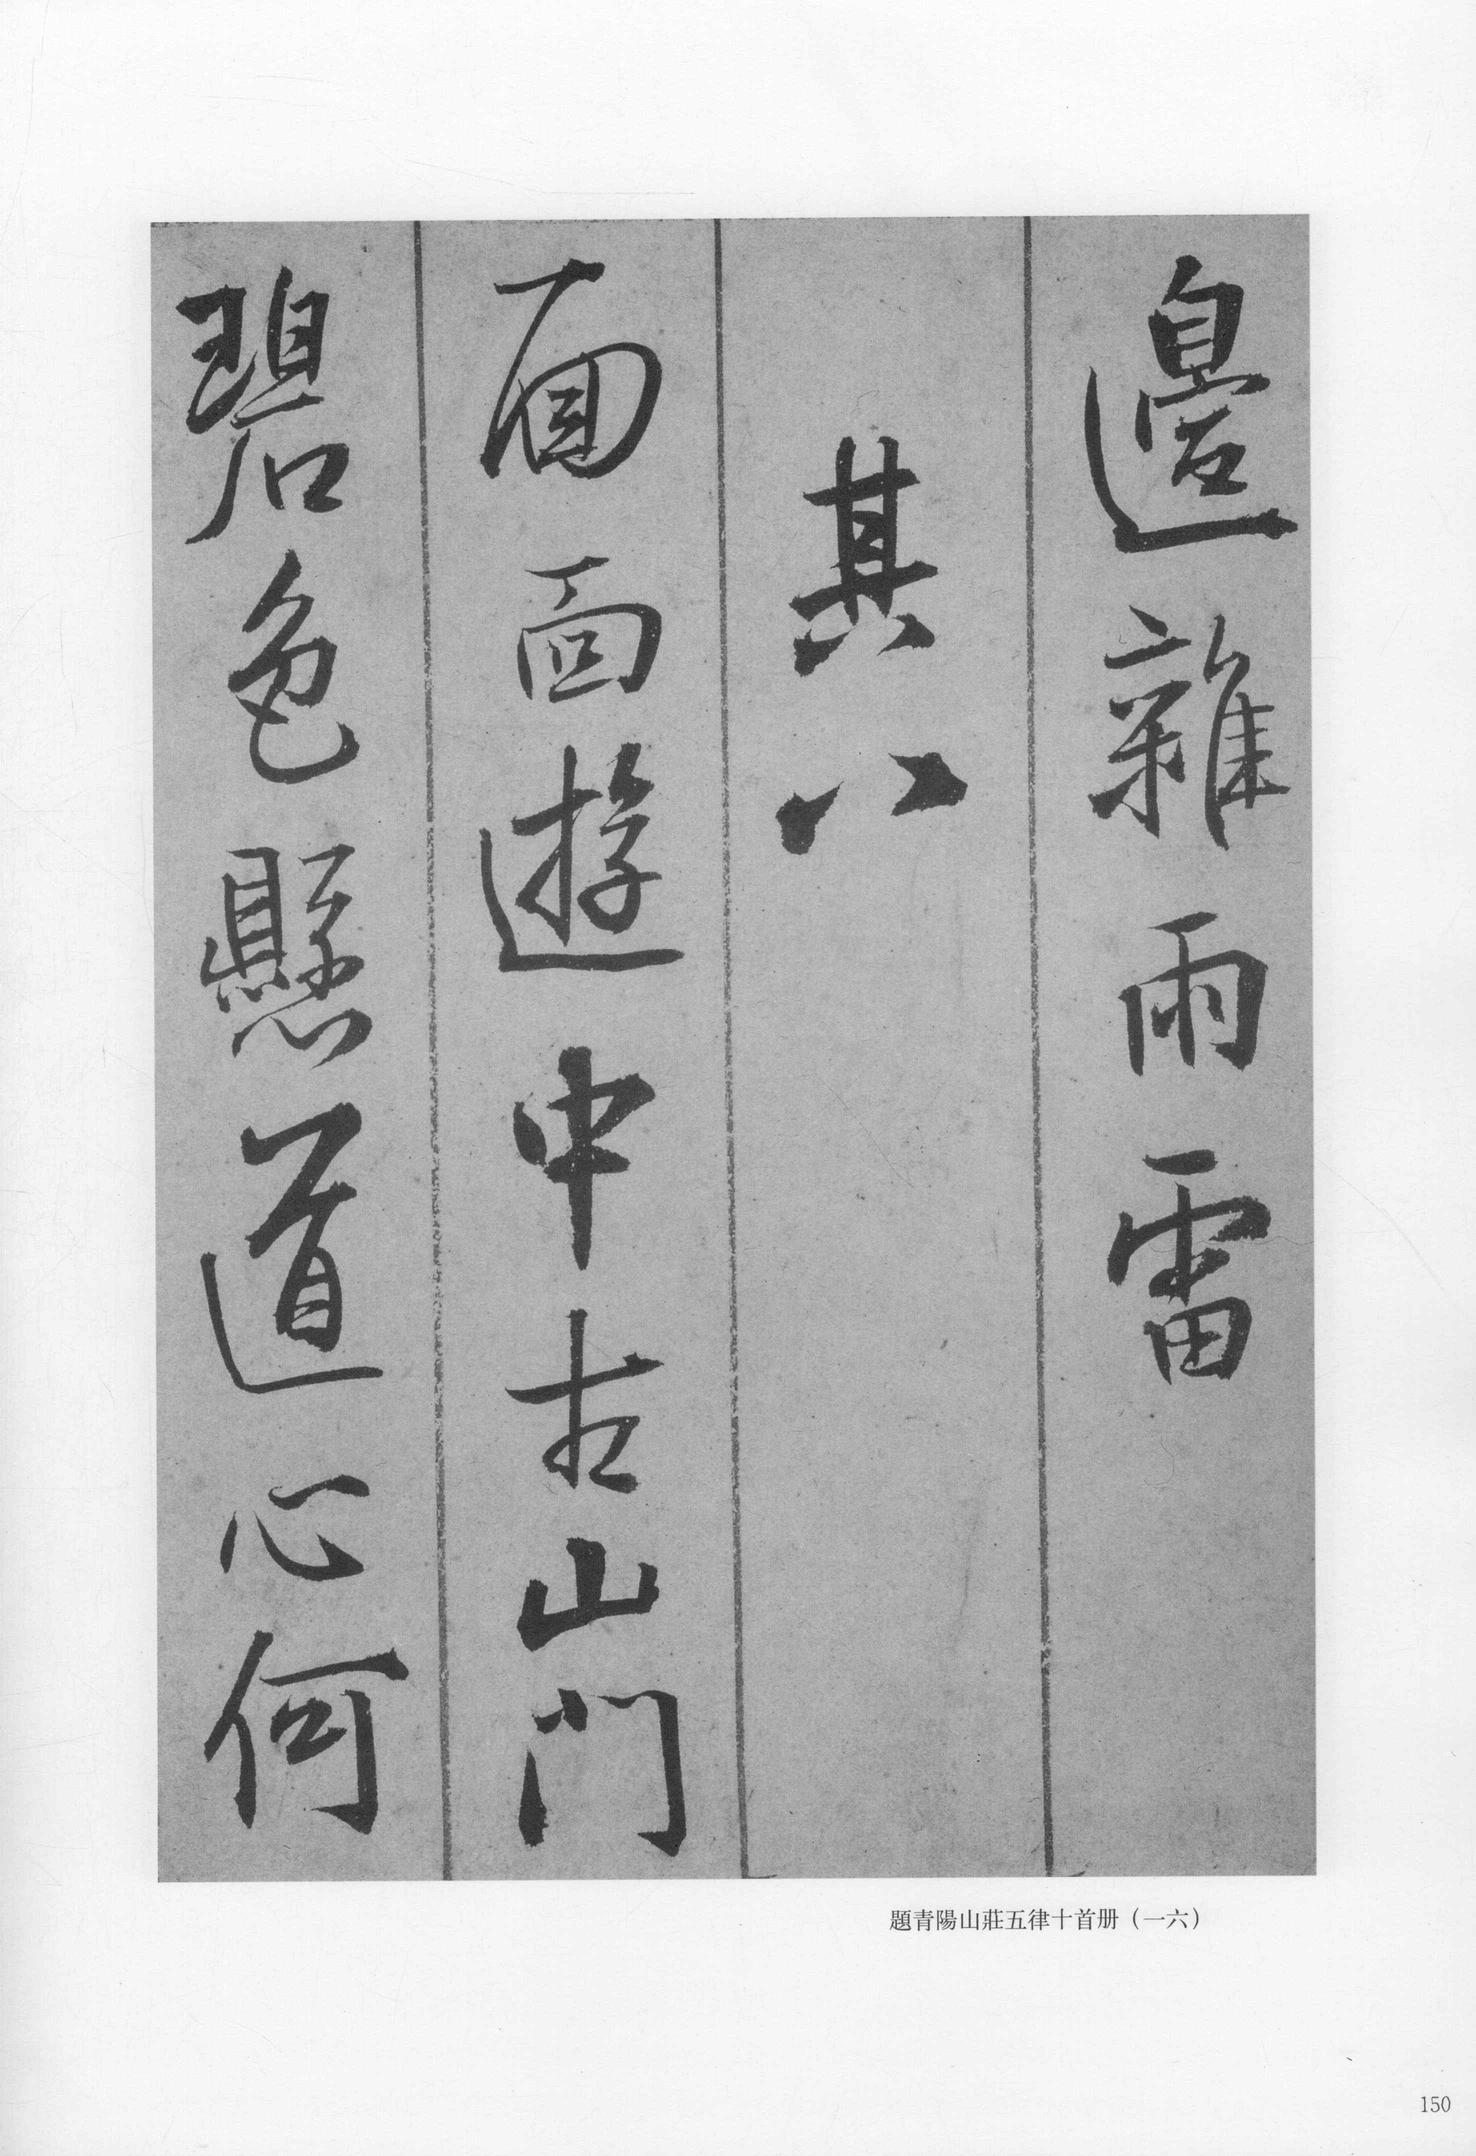 邊雜雨雷
其八
面面遊中古山門
碧色懸道心何
題青陽山莊五律十首册（一六）
150